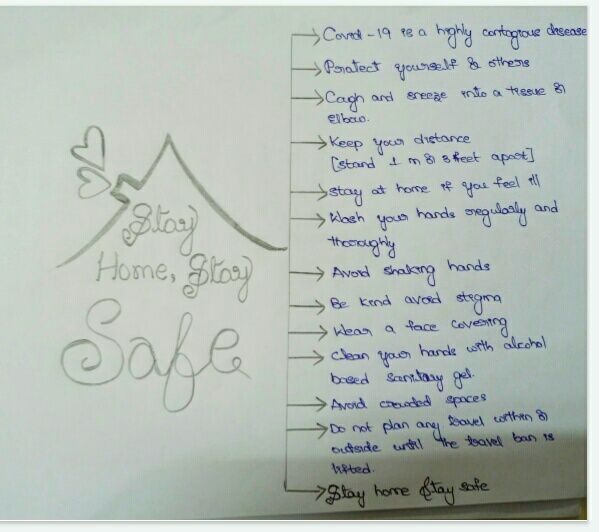 Stay
Home, Stay
Safe
Covid-19 is a highly contagious disease
Protect yourself & others
Cough and sneeze into a tissue or
elbow.
Keep your distance
[stand 1 m or 3 feet apart]
stay at home if you feel ill
Wash your hands regularly and
thoroughly
Avoid shaking hands
Be kind avoid stigma
Wear a face covering
clean your hands with alcohol
based sanitary gel.
Avoid crowded spaces
Do not plan any travel within or
outside until the travel ban is
lifted.
Stay home Stay safe